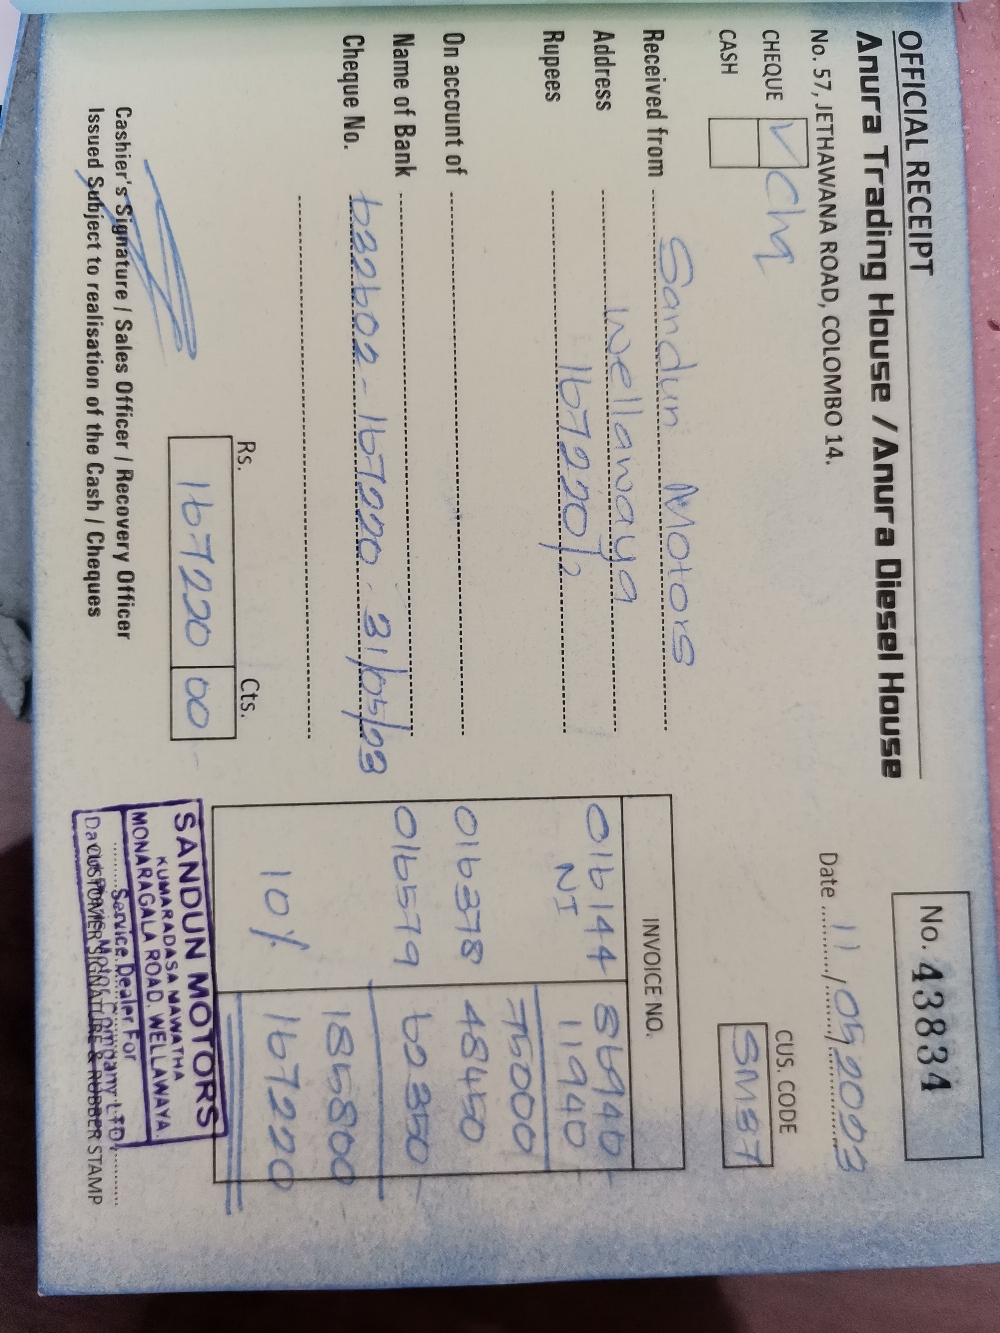 OFFICIAL RECEIPT
Anura Trading House / Anura Diesel House
No. 57, JETHAWANA ROAD, COLOMBO 14.
No. 43834
Date 11/052023
CHEQUE ✓ Chq
CASH
CUS. CODE
SM37
Received from Sandun Motors
Address Wellawaya
Rupees 167220/2
On account of
Name of Bank
Cheque No. 632602 - 167220 . 31/05/23
INVOICE NO.
016144 86940
NI 11940
75000
016378 48450
016579 62350
185800
10% 167220
Rs. Cts.
167220 00
Cashier's Signature / Sales Officer / Recovery Officer
Issued Subject to realisation of the Cash / Cheques
SANDUN MOTORS
KUMARADASA MAWATHA
MONARAGALA ROAD. WELLAWAYA.
Service Dealer For
CUSTOMER SIGNATURE & RUBBER STAMP